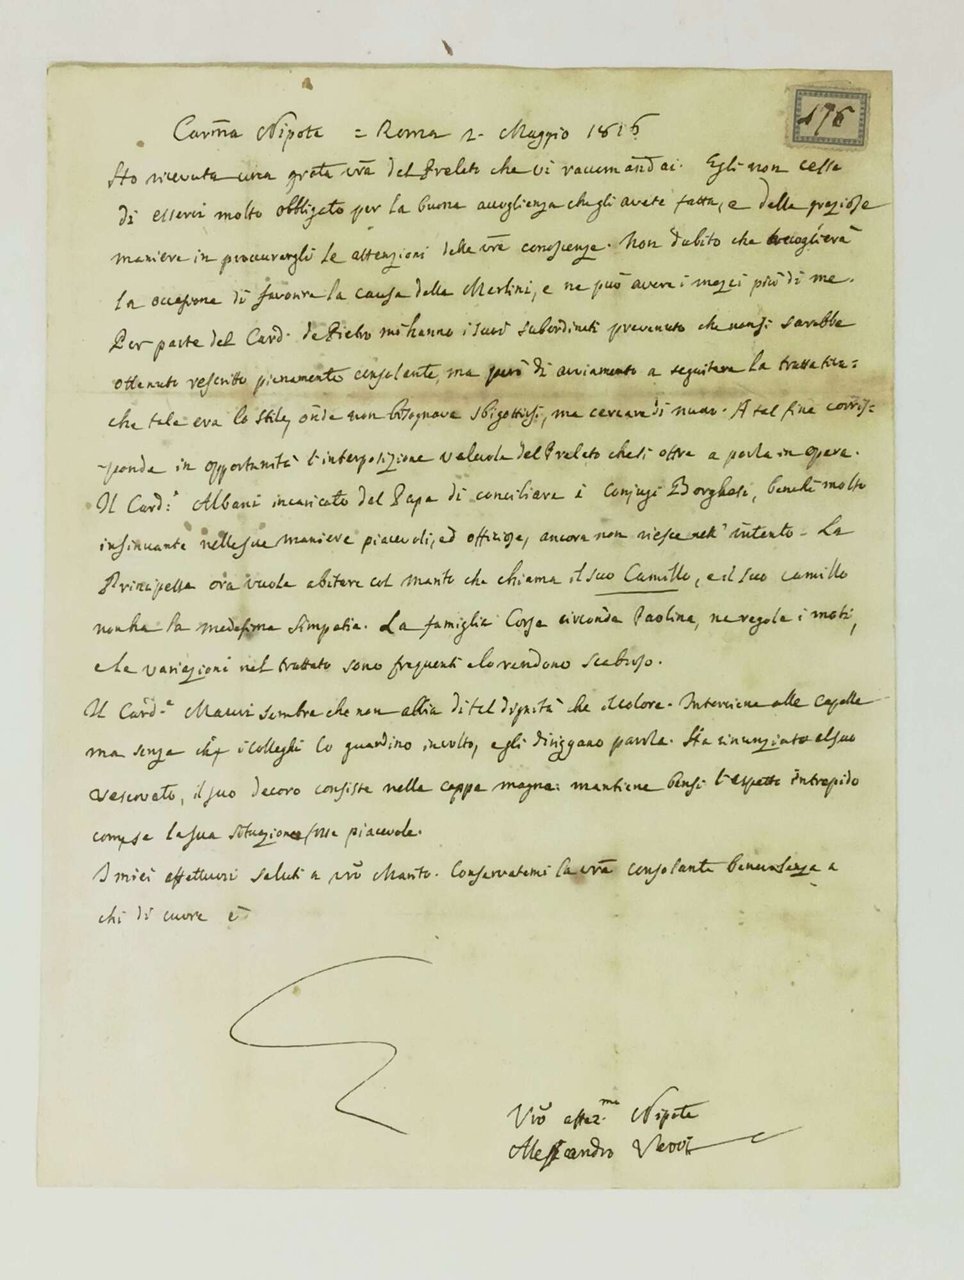 176
Carm̃a Nipote = Roma 2. Maggio 1816
Ho ricevuta una grata vr̃a del Prelato che vi raccomandai. Egli non cessa
di esservi molto obbligato per la buona accoglienza che gli avete fatta, e delle graziose
maniere in procurargli le attenzioni delle vr̃e conoscenze. Non dubito che accoglierà
la occasione di favorire la causa della Merlini, e ne può avere i mezzi più di me.
Per parte del Card. de Pietro mi hanno i suoi subordinati prevenuto che non si sarebbe
ottenuto rescritto pienamente consolante, ma però di avviamento a seguitare la trattativa:
che tale era lo stile, onde non bisognava sbigottirsi, ma cercare di nuovo. A tal fine corris=
ponde in opportunità l'interposizione valevole del Prelato che si offre a porla in opera.
Il Card.e Albani incaricato dal Papa di conciliare i conjugi Borghese, benchè molto
insinuante nelle sue maniere piacevoli, ed offiziose, ancora non riesce nell'intento. La
Principessa ora vuole abitare col marito che chiama il suo Camillo, e il suo camillo
non ha la medesima simpatia. La famiglia Corsa circonda Paolina, ne regola i moti,
e le variazioni nel trattato sono frequenti e lo rendono scabroso.
Il Card.e Mauri sembra che non abbia di tal dignità che il colore. Interviene alle capelle
ma senza che i colleghi lo guardino in volto, e gli dirizzano parola. Ha rinunziato al suo
vescovato, il suo decoro consiste nella cappa magna: mantiene bensì l'aspetto intrepido
come se la sua situazione fosse piacevole.
I miei affettuosi saluti a vr̃o Marito. Conservatemi la vr̃a consolante benevolenza a
chi di cuore è
Vr̃o affez.mo Nipote
Alessandro Verri